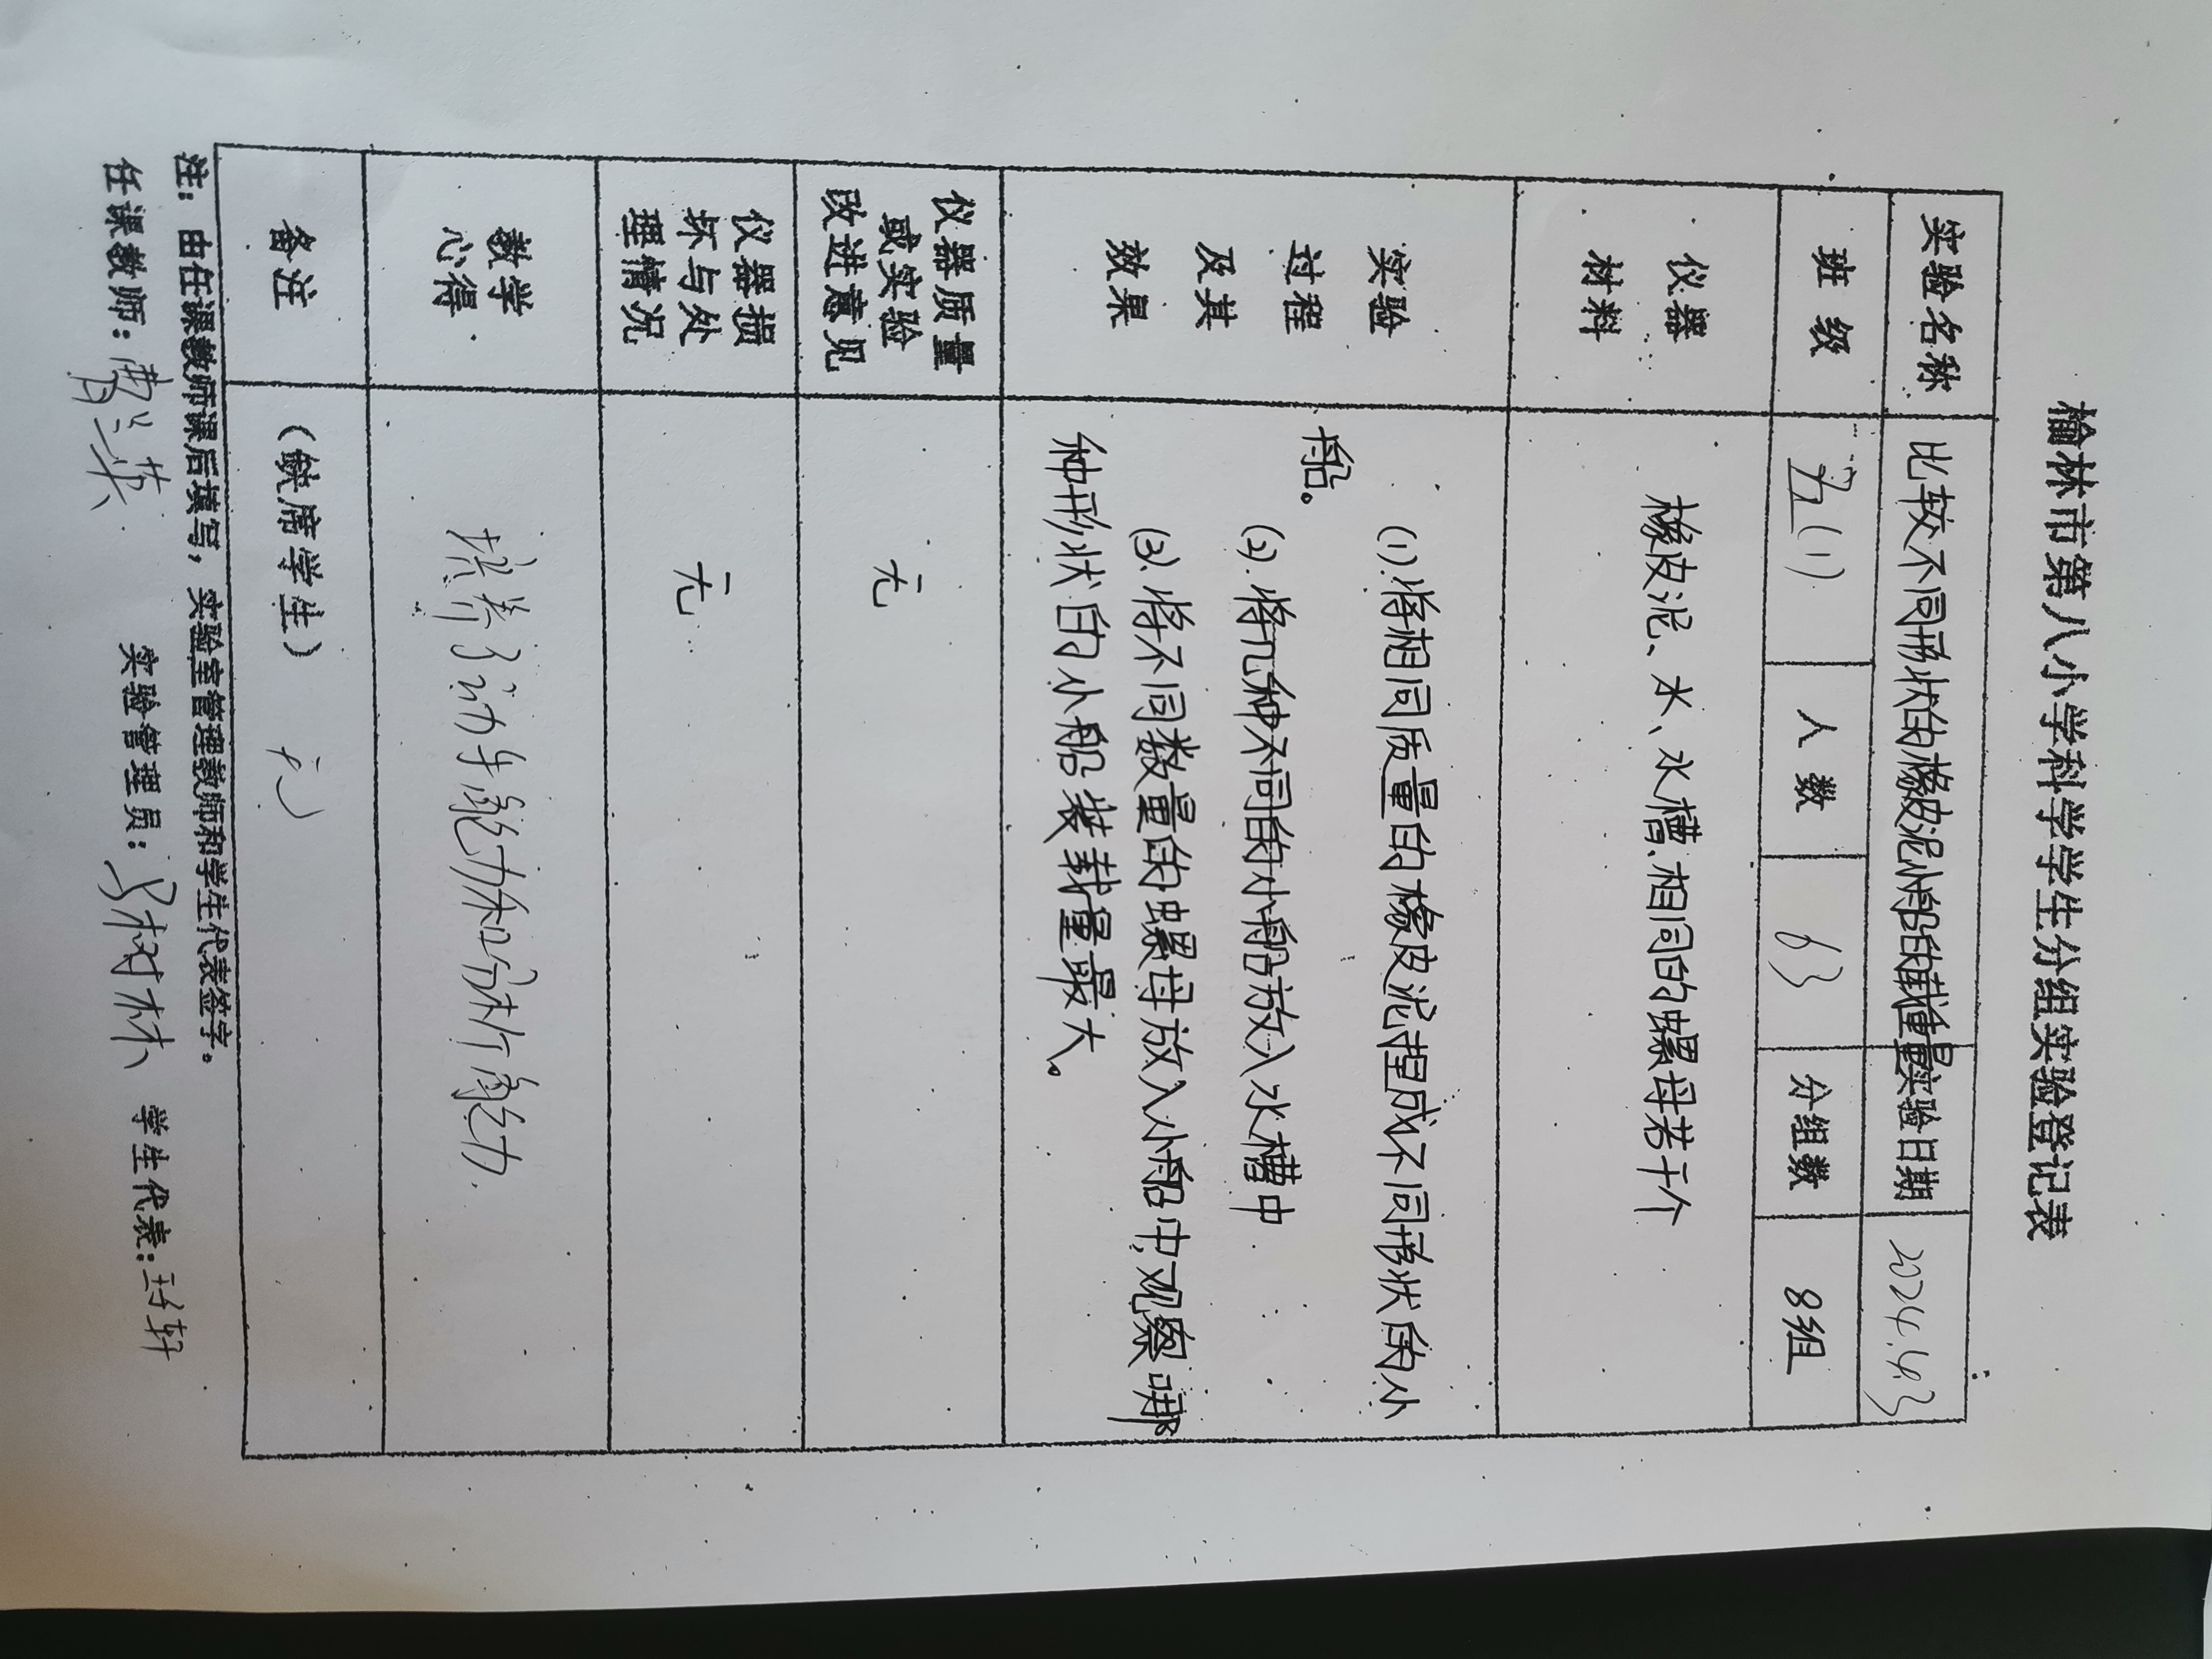 榆林市第八小学科学学生分组实验登记表
实验名称 比较不同形状的橡皮泥小船的载重量 实验日期 2024.4.3
班 级 五(1) 人 数 63 分组数 8组
仪器
材料
橡皮泥、水、水槽、相同的螺母若干个
实验
过程
及其
效果
(1).将相同质量的橡皮泥捏成不同形状的小
船。
(2).将几种不同的小船放入水槽中
(3).将不同数量的螺母放入小船中,观察哪
种形状的小船装载量最大。
仪器质量
或实验
改进意见
无
仪器损
坏与处
理情况
无
教学
心得
培养了动手能力和分析能力.
备注
(缺席学生) 无
注：由任课教师课后填写，实验室管理教师和学生代表签字。
任课教师： 实验管理员： 树林 学生代表：